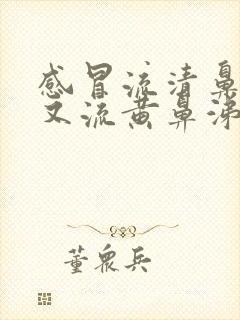 感冒流清鼻
又流黄鼻涕
董众兵